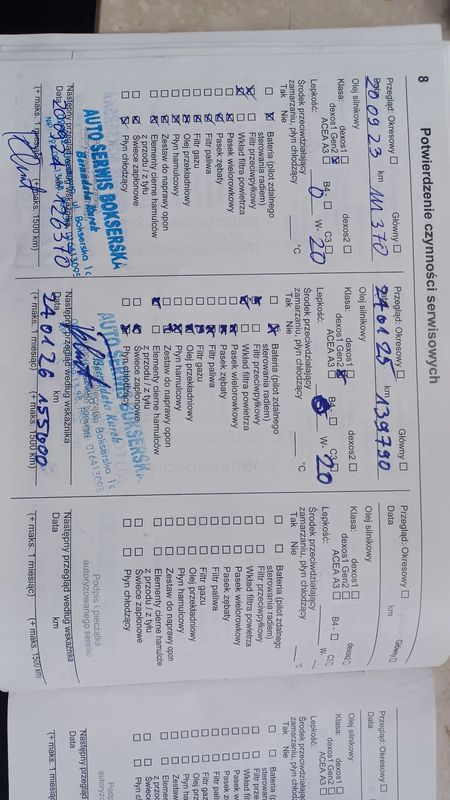 8
Potwierdzenie czynności serwisowych
Przegląd: Okresowy Główny
Data km
200923 111370
Olej silnikowy
Klasa: dexos1 dexos2
dexos1 Gen2
ACEA A3 C3
Lepkość: B4 0 W- 20
Środek przeciwdziałający
zamarzaniu, płyn chłodzący °C
Tak Nie
Bateria (pilot zdalnego
sterowania radiem)
Filtr przeciwpyłkowy
Wkład filtra powietrza
Pasek wielorowkowy
Pasek zębaty
Filtr paliwa
Filtr gazu
Olej przekładniowy
Płyn hamulcowy
Zestaw do naprawy opon
Elementy cierne hamulców
z przodu / z tyłu
Świece zapłonowe
Płyn chłodzący
AUTO SERWIS BOKSERSKA
ul. Bokserska 1c
Następny przegląd według wskaźnika
Data km
126370
(+ maks. 1 miesiąc) (+ maks. 1500 km)
Przegląd: Okresowy Główny
240125 139790
Olej silnikowy
Klasa: dexos1 dexos2
dexos1 Gen2
ACEA A3 C3
Lepkość: W- 20
Środek przeciwdziałający
zamarzaniu, płyn chłodzący °C
Tak Nie
Bateria (pilot zdalnego
sterowania radiem)
Filtr przeciwpyłkowy
Wkład filtra powietrza
Pasek wielorowkowy
Pasek zębaty
Filtr paliwa
Filtr gazu
Olej przekładniowy
Płyn hamulcowy
Zestaw do naprawy opon
Elementy cierne hamulców
z przodu / z tyłu
Świece zapłonowe
Płyn chłodzący
AUTO SERWIS BOKSERSKA
Bokserska 1c
Następny przegląd według wskaźnika
Data km
240126 155000
(+ maks. 1 miesiąc) (+ maks. 1500 km)
Przegląd: Okresowy Główny
Data km
Olej silnikowy
Klasa: dexos1 dexos2
dexos1 Gen2
ACEA A3 C3
Lepkość: B4 W-
Środek przeciwdziałający
zamarzaniu, płyn chłodzący
Tak Nie
Bateria (pilot zdalnego
sterowania radiem)
Filtr przeciwpyłkowy
Wkład filtra powietrza
Pasek wielorowkowy
Pasek zębaty
Filtr paliwa
Filtr gazu
Olej przekładniowy
Płyn hamulcowy
Zestaw do naprawy opon
Elementy cierne hamulców
z przodu / z tyłu
Świece zapłonowe
Płyn chłodzący
Podpis i pieczątka
autoryzowanego serwisu
Następny przegląd według wskaźnika
Data km
(+ maks. 1 miesiąc) (+ maks. 1500 km)
Przegląd: Okresowy
Data
Olej silnikowy
Klasa: dexos1
dexos1 Gen2
ACEA A3
Lepkość:
Środek przeciwdziałający
zamarzaniu, płyn chłodzący
Tak Nie